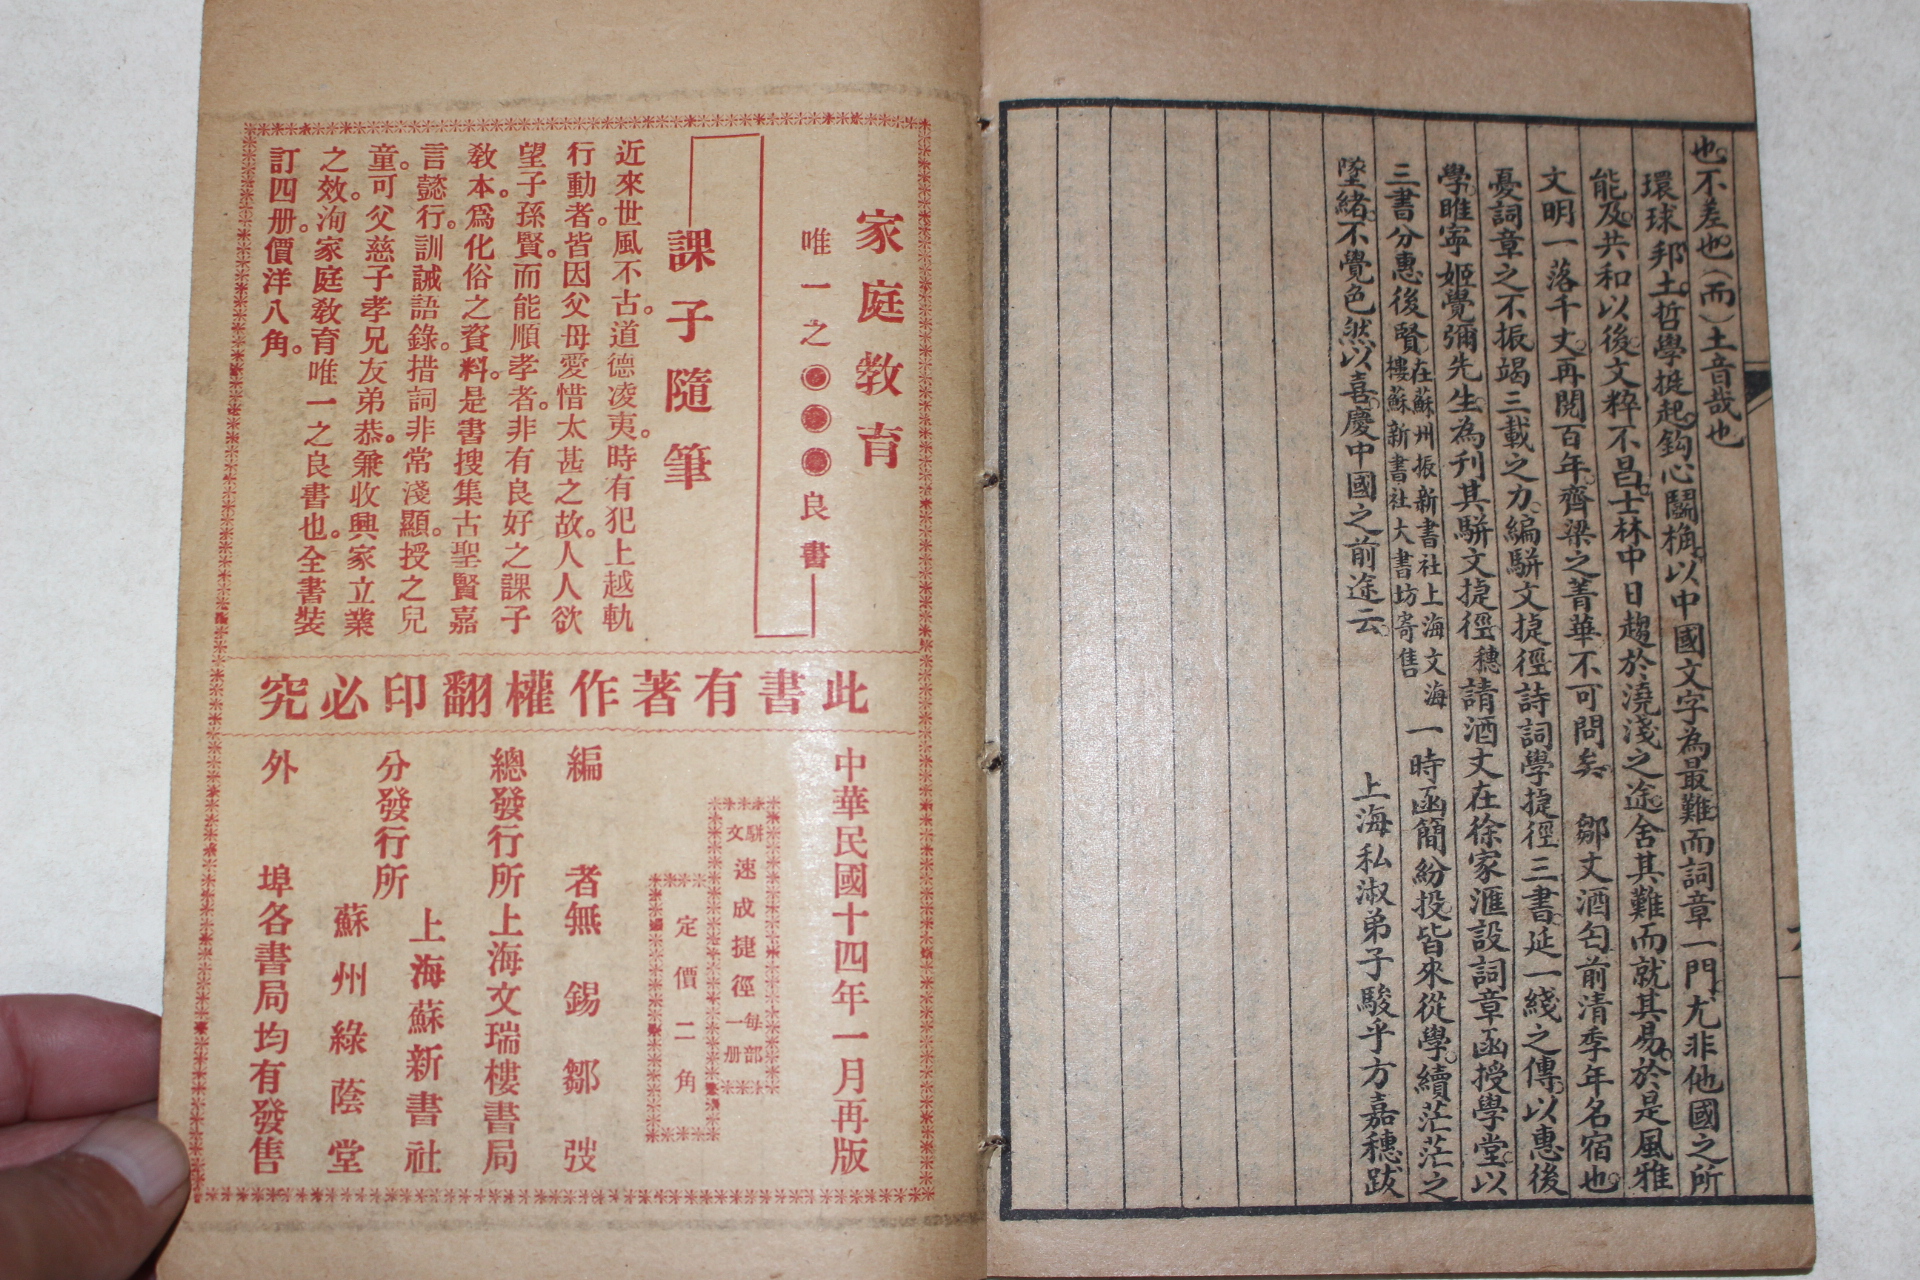 也不差也(而)土音哉也
環球邦土哲學挺起鈎心鬭桷以中國文字為最難而詞章一門尤非他國之所
能及共和以後文粹不昌士林中日趨於澆淺之途舍其難而就其易於是風雅
文明一落千丈再閱百年齊梁之菁華不可問矣 鄒丈酒匄前清季年名宿也
憂詞章之不振竭三載之力編駢文捷徑詩詞學捷徑三書延一綫之傳以惠後
學睢寧姬覺彌先生為刊其駢文捷徑穗請酒丈在徐家滙設詞章函授學堂以
三書分惠後賢在蘇州振新書社上海文海樓蘇新書社大書坊寄售一時函簡紛投皆來從學續茫茫之
墜緒不覺色然以喜慶中國之前途云
上海私淑弟子駿乎方嘉穗跋
家庭教育
唯一之◉◉◉良書
課子隨筆
近來世風不古。道德凌夷。時有犯上越軌
行動者。皆因父母愛惜太甚之故。人人欲
望子孫賢。而能順孝者。非有良好之課子
教本。爲化俗之資料。是書搜集古聖賢嘉
言懿行。訓誡語錄。措詞非常淺顯。授之兒
童。可父慈子孝兄友弟恭。兼收興家立業
之效。洵家庭教育唯一之良書也。全書裝
訂四册。價洋八角。
此書有著作權翻印必究
中華民國十四年一月再版
駢文速成捷徑每部一册
定價二角
編者無錫鄒弢
總發行所上海文瑞樓書局
分發行所
上海蘇新書社
蘇州綠蔭堂
外埠各書局均有發售